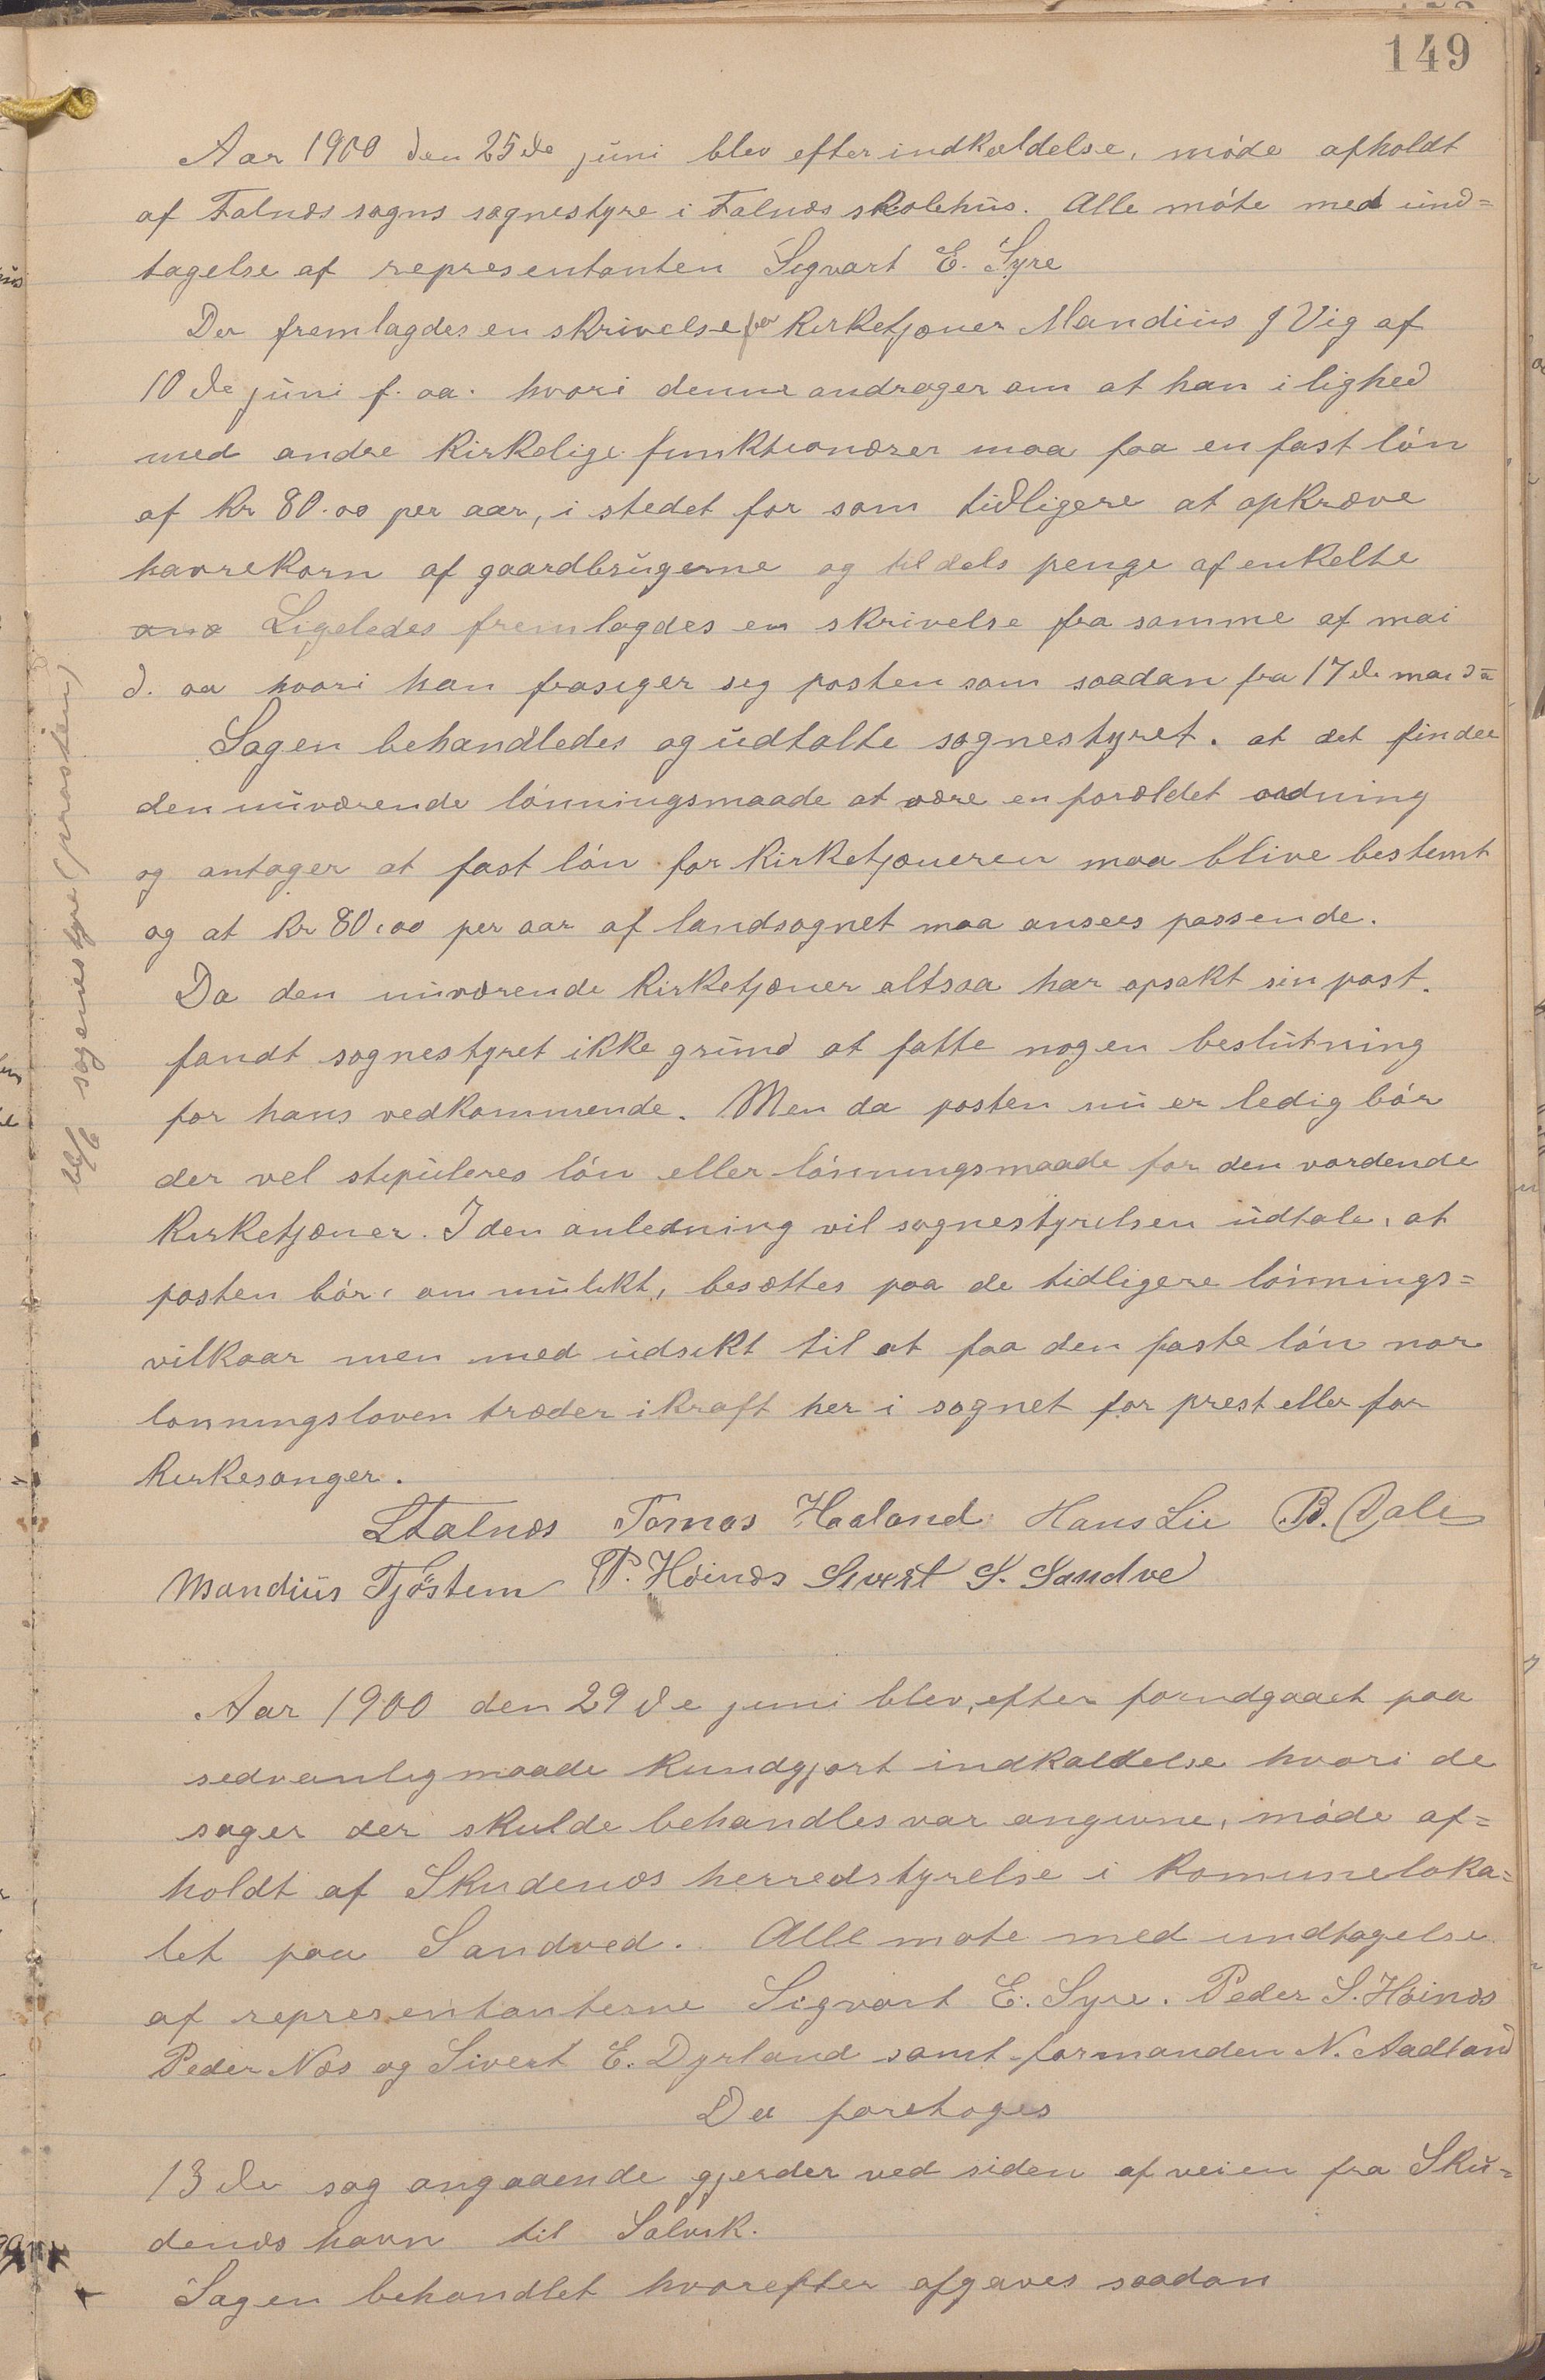 149
Aar 1900 den 25de juni blev efter indkaldelse, møde afholdt
af Falnæs sogns sognestyre i Falnæs skolehus. Alle møte med und=
tagelse af representanten Sigvart E. Syre
Der fremlagdes en skrivelse fra kirketjæner Mandius J Vig af
10de juni f. aa. hvori denne andrager om at han i lighed
med andre kirkelige funktionærer maa faa en fast løn
af kr 80.00 per aar, i stedet for som tidligere at opkræve
havrekorn af gaardbrugerne og tildels penge af enkelte
Ligeledes fremlagdes en skrivelse fra samme af mai
d. aa hvori han frasiger seg posten som saadan fra 17de mai d.a.
Sagen behandledes og udtalte sognestyret. at det finder
den nuværende lønningsmaade at være en forældet ordning
og antager at fast løn for kirketjæneren maa blive bestemt
og at kr 80.00 per aar af landsognet maa ansees passende.
Da den nuværende kirketjæner altsaa har opsakt sin post.
fandt sognestyret ikke grund at fatte nogen beslutning
for hans vedkommende. Men da posten nu er ledig bør
der vel stipuleres løn eller lønningsmaade for den vordende
kirketjæner. I den anledning vil sognestyrelsen udtale, at
posten bør, om mulikt, besættes paa de tidligere lønnings=
vilkaar men med udsikt til at faa den faste løn nar
lønningsloven træder ikraft her i sognet for prest eller for
kirkesanger.
LFalnæs Tomas Haaland Hans Lie B. Dale
Mandius Tjøstem P. Høinæs Sivert S. Sandve
Aar 1900 den 29de juni blev, efter forudgaaet paa
sedvanlig maade kundgjort indkaldelse hvori de
sager der skulde behandles var angivne, møde af=
holdt af Skudenæs herredstyrelse i komuneloka=
let paa Sandved. Alle møte med undtagelse
af representanterne Sigvart E. Syre. Peder S. Høinæs
Peder Næs og Sivert E. Dyrland samt formanden N. Aadland
Der foretoges
13de sag angaaende gjerder ved siden af veien fra Sku=
denæshavn til Salvik.
Sagen behandlet hvorefter afgaves saadan
sognestyre (prosten)